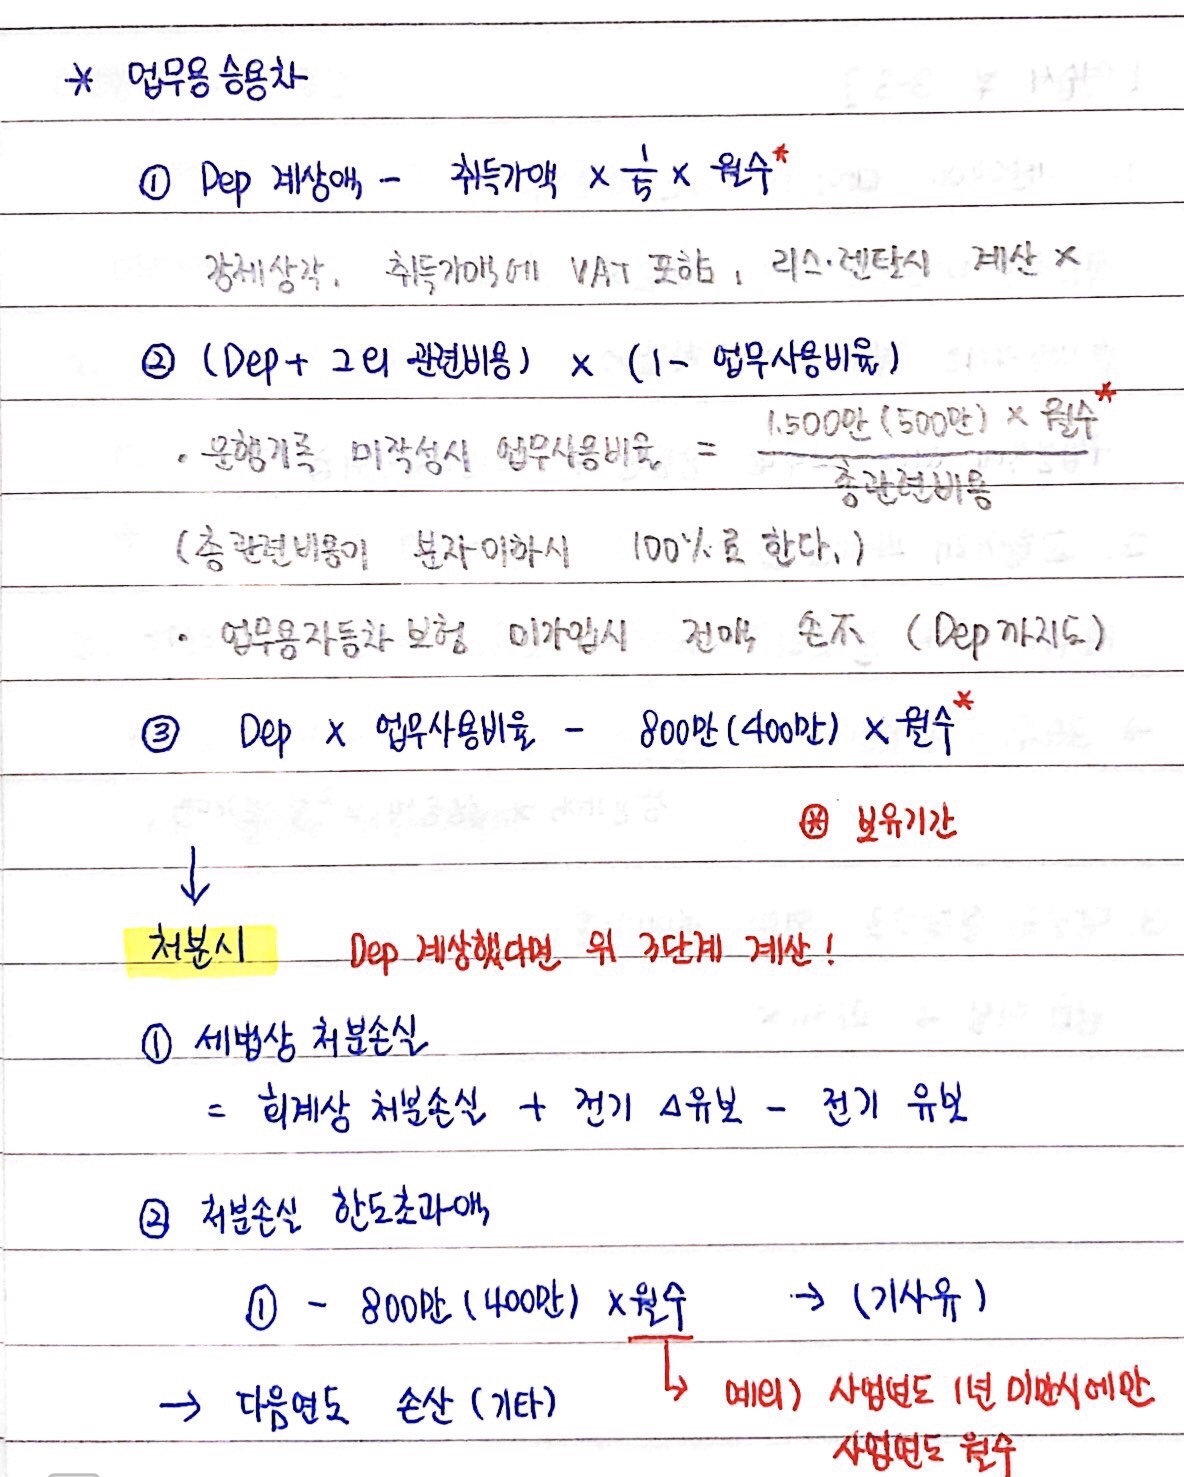 * 업무용 승용차
① Dep 계상액 - 취득가액 × 1/5 × 월수*
강제상각, 취득가액에 VAT 포함, 리스·렌탈시 계산 ×
② (Dep + 그외 관련비용) × (1 - 업무사용비율)
· 운행기록 미작성시 업무사용비율 = 1,500만(500만) × 월수* / 총관련비용
(총관련비용이 분자이하시 100%로 한다.)
· 업무용자동차보험 미가입시 전액 손不 (Dep까지도)
③ Dep × 업무사용비율 - 800만(400만) × 월수*
⊛ 보유기간
↓
처분시 Dep 계상했다면 위 3단계 계산!
① 세법상 처분손실
= 회계상 처분손실 + 전기 △유보 - 전기 유보
② 처분손실 한도초과액
① - 800만(400만) × 월수 → (기사유)
→ 다음연도 손산(기타)
↳ 예외) 사업연도 1년 미만시에만
사업연도 월수